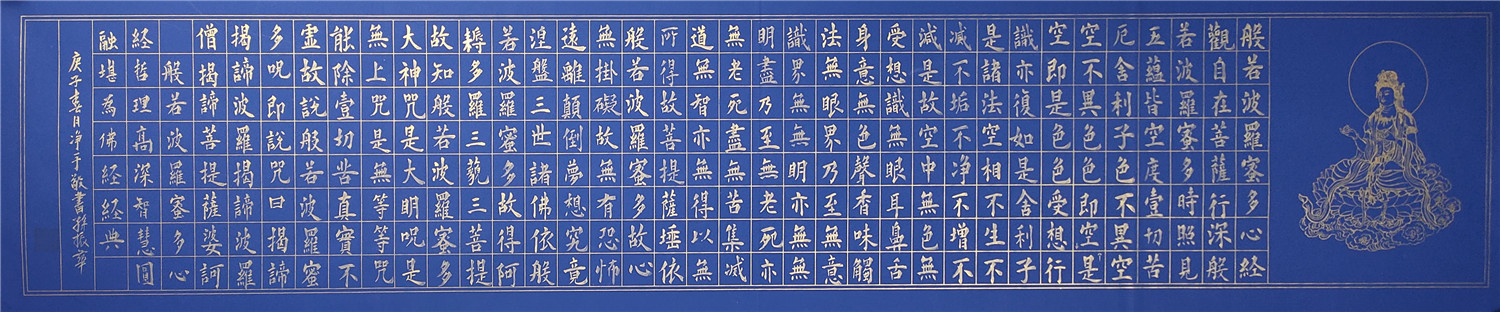 般若波羅蜜多心經
觀自在菩薩行深般
若波羅蜜多時照見
五蘊皆空度壹切苦
厄舍利子色不異空
空不異色色即空是
空即是色色受想行
識亦復如是舍利子
是諸法空相不生不
滅不垢不净不增不
減是故空中無色無
受想識無眼耳鼻舌
身意無色聲香味觸
法無眼界乃至無意
識界無無明亦無無
明盡乃至無老死亦
無老死盡無苦集滅
道無智亦無得以無
所得故菩提薩埵依
般若波羅蜜多故心
無掛礙故無有恐怖
遠離顛倒夢想究竟
涅盤三世諸佛依般
若波羅蜜多故得阿
耨多羅三藐三菩提
故知般若波羅蜜多
大神咒是大明咒是
無上咒是無等等咒
能除壹切苦真實不
虛故說般若波羅蜜
多咒即說咒曰揭諦
揭諦波羅揭諦波羅
僧揭諦菩提薩婆訶
般若波羅蜜多心
經哲理高深智慧圓
融堪為佛經經典
庚子春月净手敬書孫振華